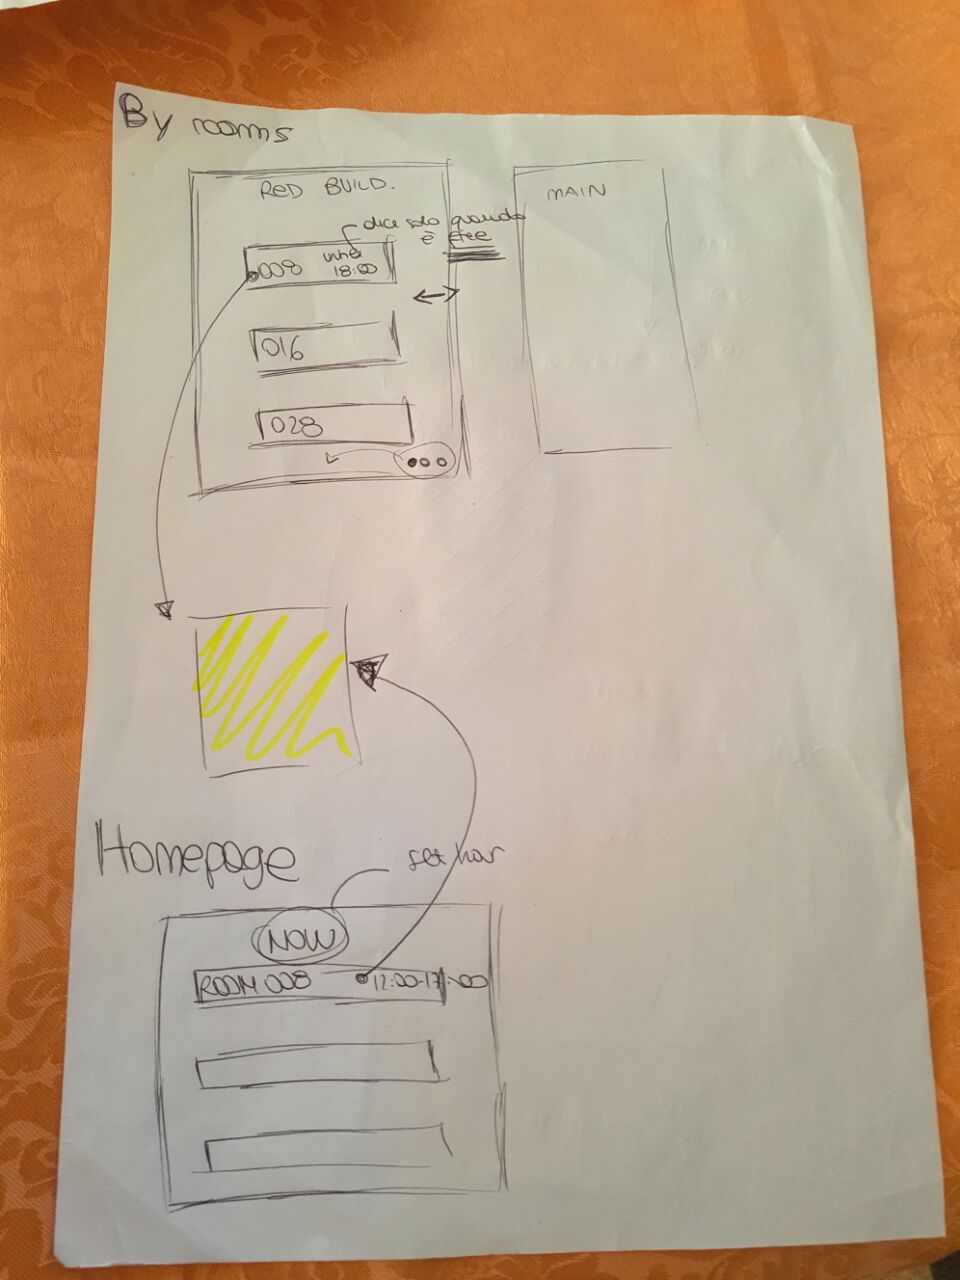 By rooms
RED BUILD.
MAIN
dice solo quando
è free
008
until
18:00
016
028
Homepage
set hour
NOW
ROOM 008
12:00-17:00